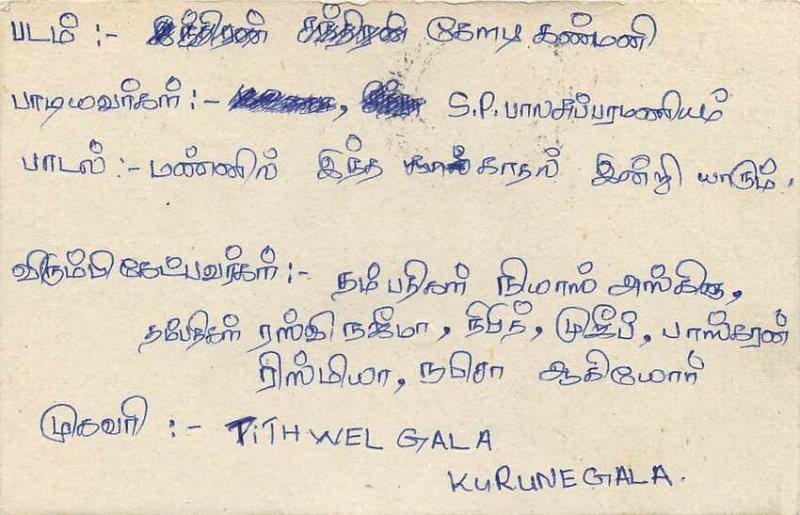 படம் :- கேளடி கண்மணி
பாடியவர்கள் :- S.P. பாலசுப்பரமணியம்
பாடல் :- மண்ணில் இந்த காதல் இன்றி யாரும்.
விரும்பி கேட்பவர்கள் :- தம்பதிகள் நிமாஸ்
ரஸ்மி நஜீமா, முஜீப், பாஸ்கரன்
ரிஸ்மியா, ஆகியோர்
முகவரி :- TITHWEL GALA
KURUNEGALA.